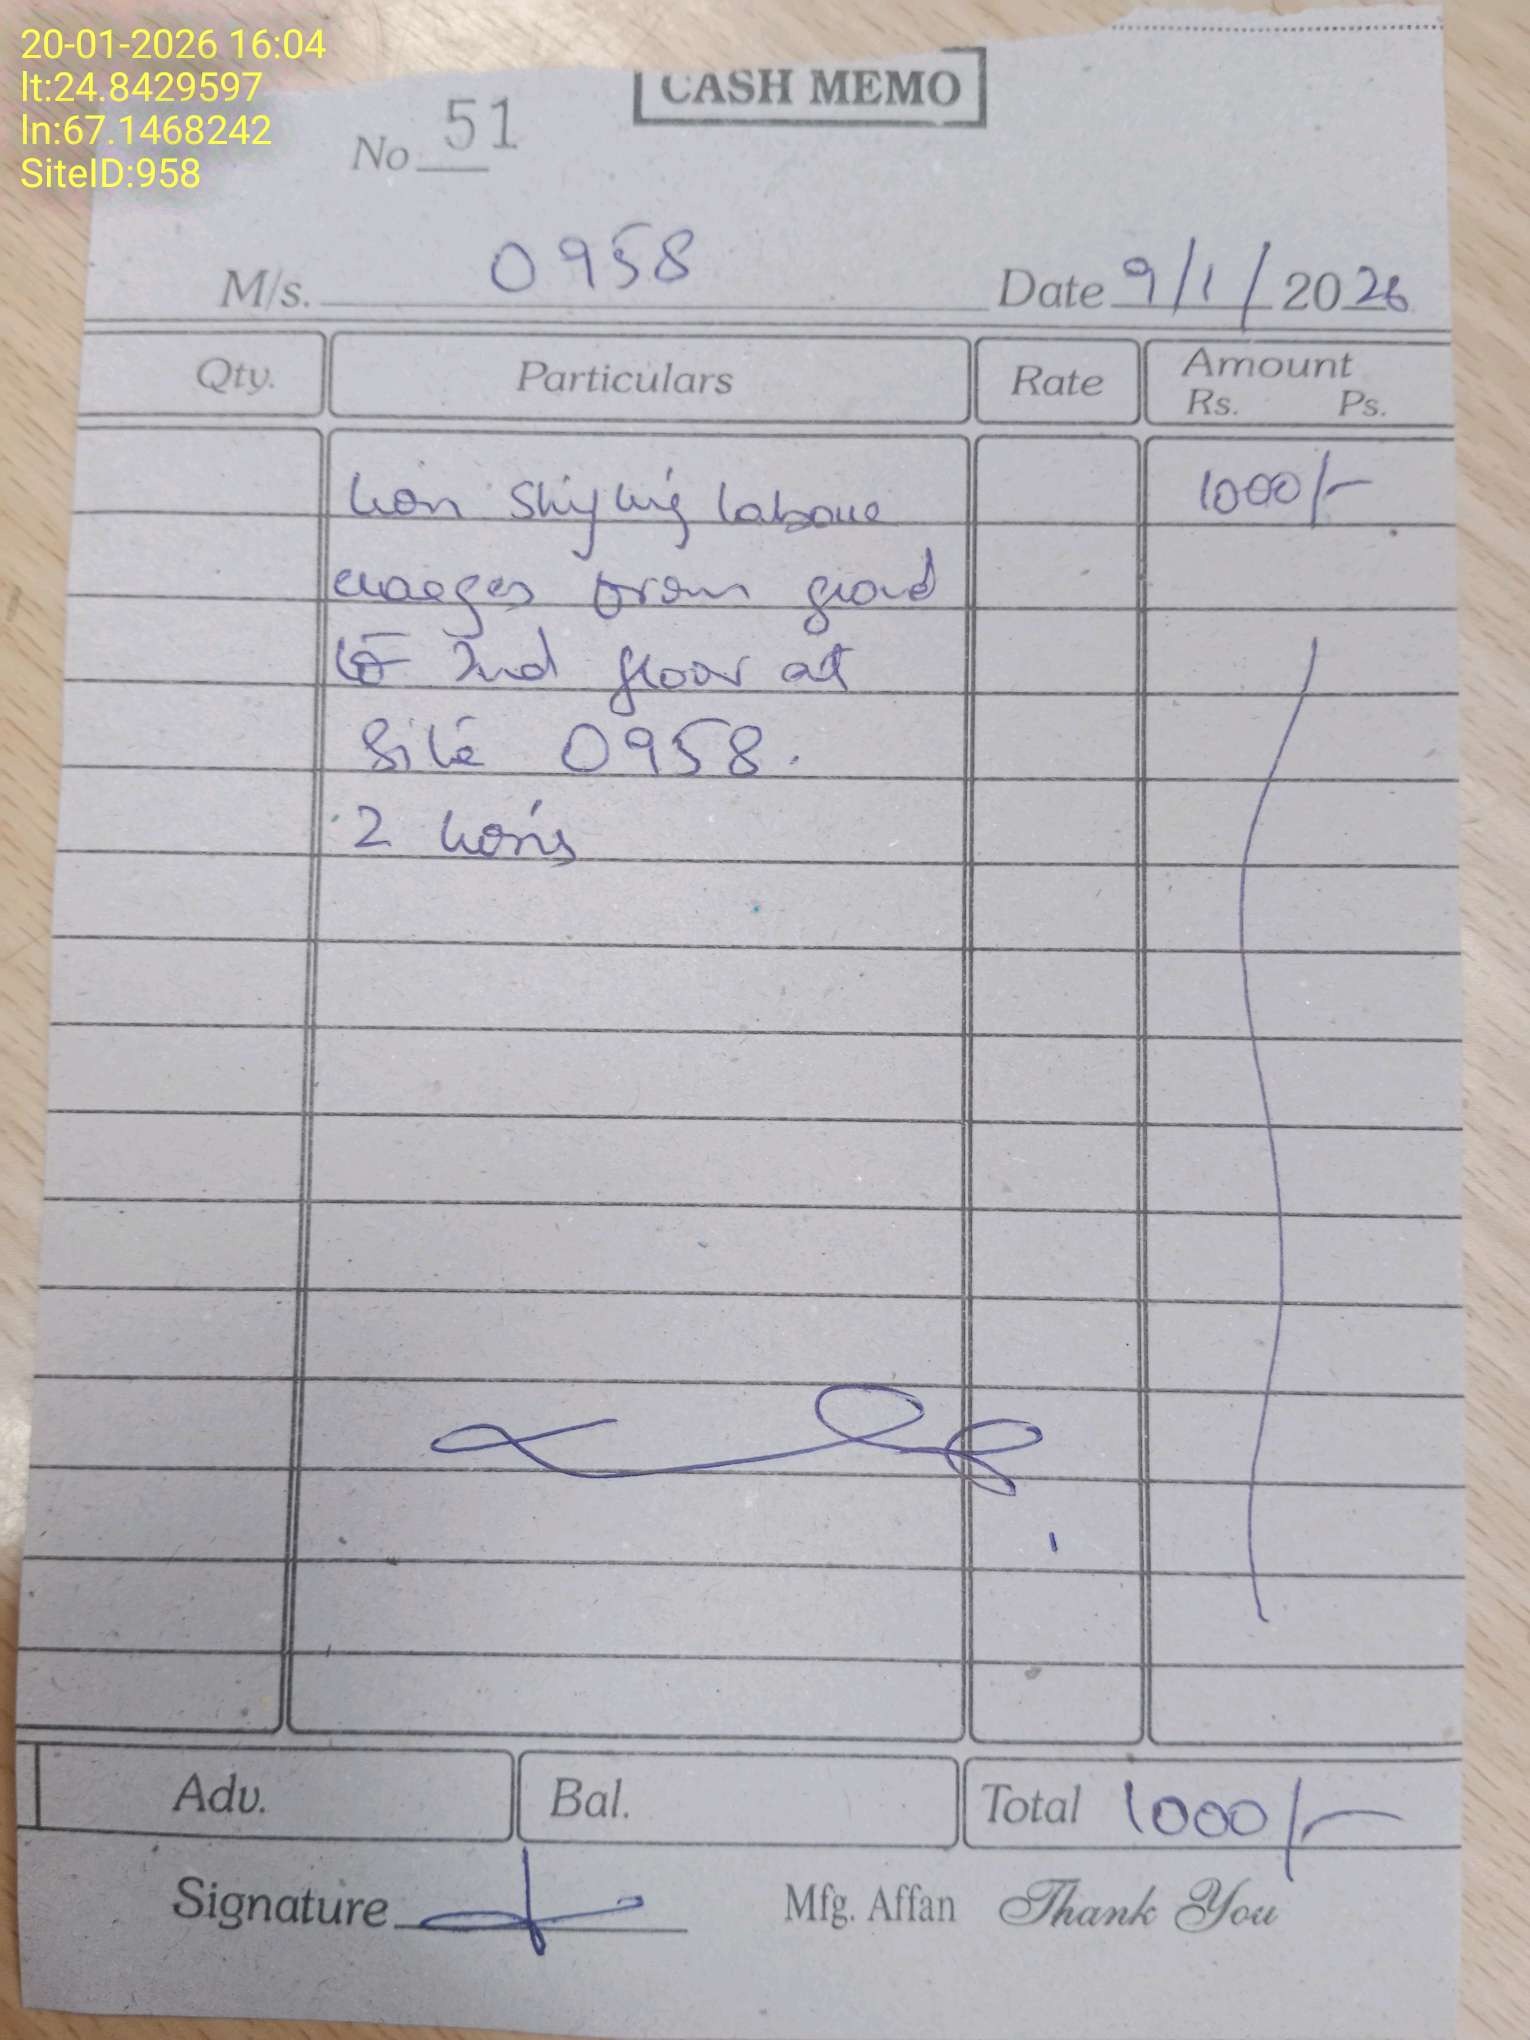 20-01-2026 16:04
lt:24.8429597
ln:67.1468242
SiteID:958
CASH MEMO
No 51
M/s. 0958 Date 9/1/2026
Qty. Particulars Rate Amount
Rs. Ps.
labour 1000/-
charges from ground
to 2nd floor at
Site 0958.
2
Adv. Bal. Total 1000/-
Signature Mfg. Affan Thank You